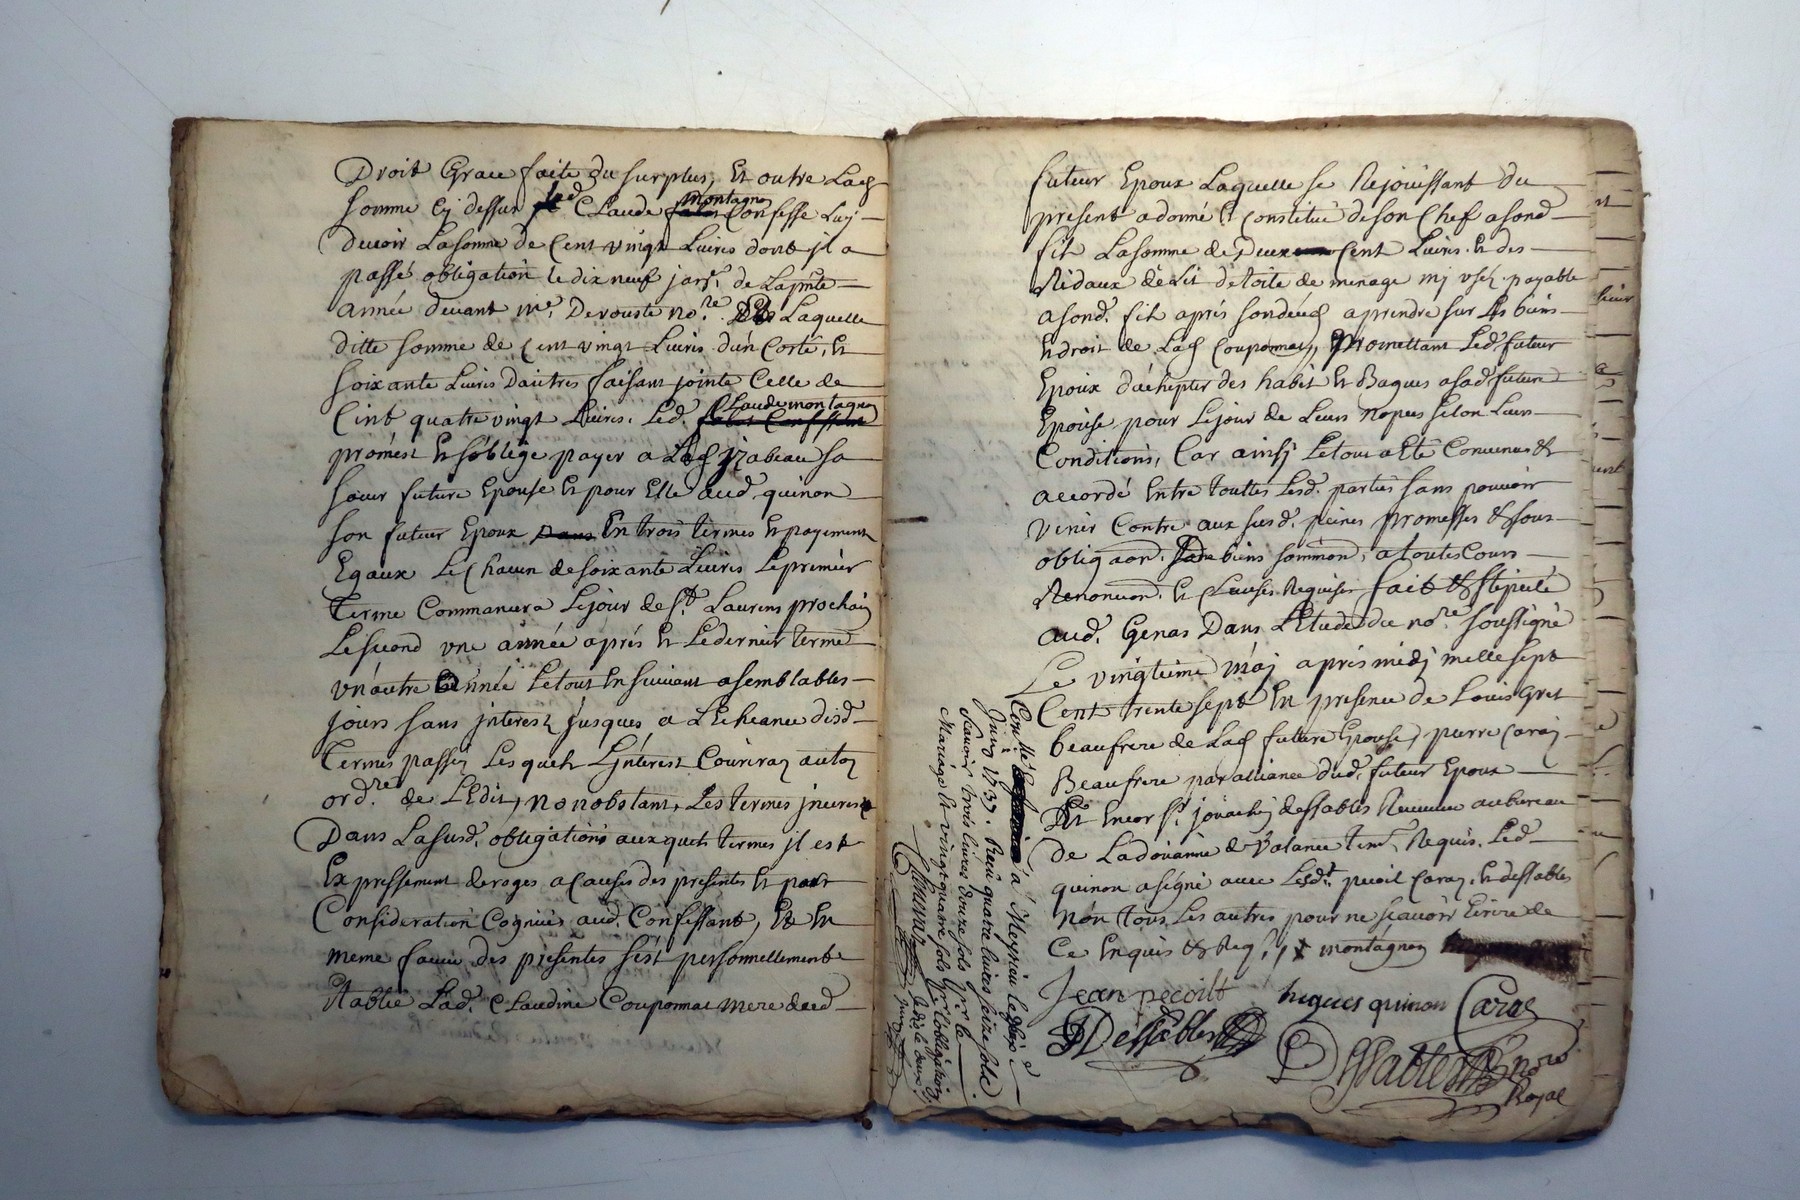 Droit Grace faite du surplus, Et outre Lad
somme cy dessus led Claude montagnon Confesse Luy
devoir La somme de Cent vingt Livres dont jl a
passé obligation le dix neuf janr. de La pnte
année devant me. Devouste nore. Laquelle
ditte somme de Cent vingt Livres d'un Costé, Et
soixante Livres Dautres faisant jointe Celle de
Cent quatre vingt Livres. Led. Claude montagnon
promest Et s'oblige payer a Lad jzabeau sa
soeur future Epouse Et pour Elle aud. quinon
son futur Epoux En trois termes Et payement
Egaux Le Chacun de soixante Livres Le premier
terme Commancera Le jour de St. Laurens prochain
Le second une année aprés Et Le dernier terme
un autre année Le tout En suivant a semblables
jours sans jnterest jusques a L'Echeance disd
termes passés Lesquels L'jnterest Couriron au ton
ordre. de L'Edit, nonobstant, Les termes jnceres
Dans La susd. obligations auxquels termes jl est
Expressement deroges a Causes des presentes Et pour
Consideration Cognüe aud. Confessant, Et En
meme faveur des presentes s'est personnellement
Etablie Lad. Claudine Couponnat mere dud
futeur Epoux Laquelle se Rejouissant du
present a donné Et Constitué de son Chef a sond
fils La somme de Deux Cent Livres. Et des
Ridaux de Lit de toile de menage mj usés. payable
a sond. fils aprés son decés a prendre sur Les biens
Et droit de Lad Couponnat, Promettant Led. futeur
Epoux d'achepter des habit Et Bagues a sad. future
Epouse pour Le jour de Leurs nopces selon Leurs
Conditions, Car ainsj Le tout a Eté Convenus &
accordé Entre touttes Lesd. parties sans pouvoir
venir Contre aux susd. peines promesses & sous
obligaon. biens sommon. a toutes Cours
Renonceon. Et Clauses Requises fait & stipulé
aud. Genas Dans L'Etude du nore. soussigné
Le vingtieme maj aprés midj mille sept
Cent trente sept En presence de Louis Gret
beaufrere de Lad future Epouse, pierre Caraz
Beaufrere par alliance dud. futeur Epoux
Et Encor sr. joüachin dessables Receveur au bureau
De La doüanne de Valance tem. Requis. Led
quinon a signé avec Lesdt. pecoil Caraz. Et dessables
non tous Les autres pour ne sçavoir Ecrire de
Ce Enquis & Reqs. montagnon
Jean pecoilt hugues quinon Caraz
Dessables Dessables nore
Royal
Conllé a Meyzieu le dix
Juin 1737. Receu quatre livres seize sols
Scavoir trois livres douze sols pr. le
Mariage et vingt quatre sols pr. l'obligation